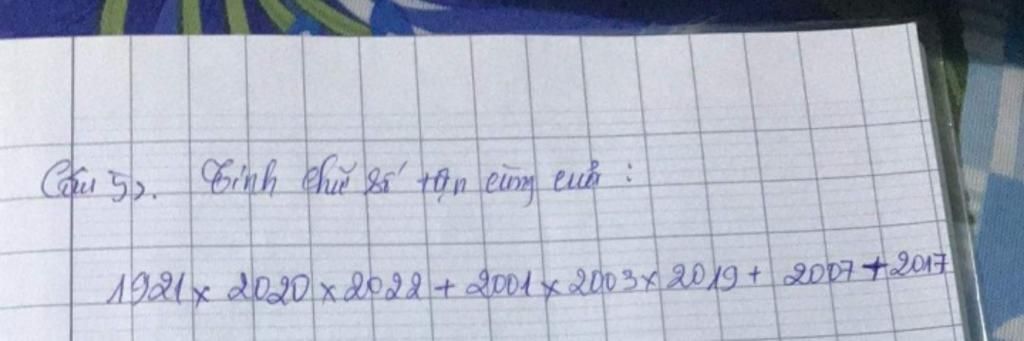 Câu 5). Tính chữ số tận cùng của :
1921 x 2020 x 2022 + 2001 x 2003 x 2019 + 2007 + 2017